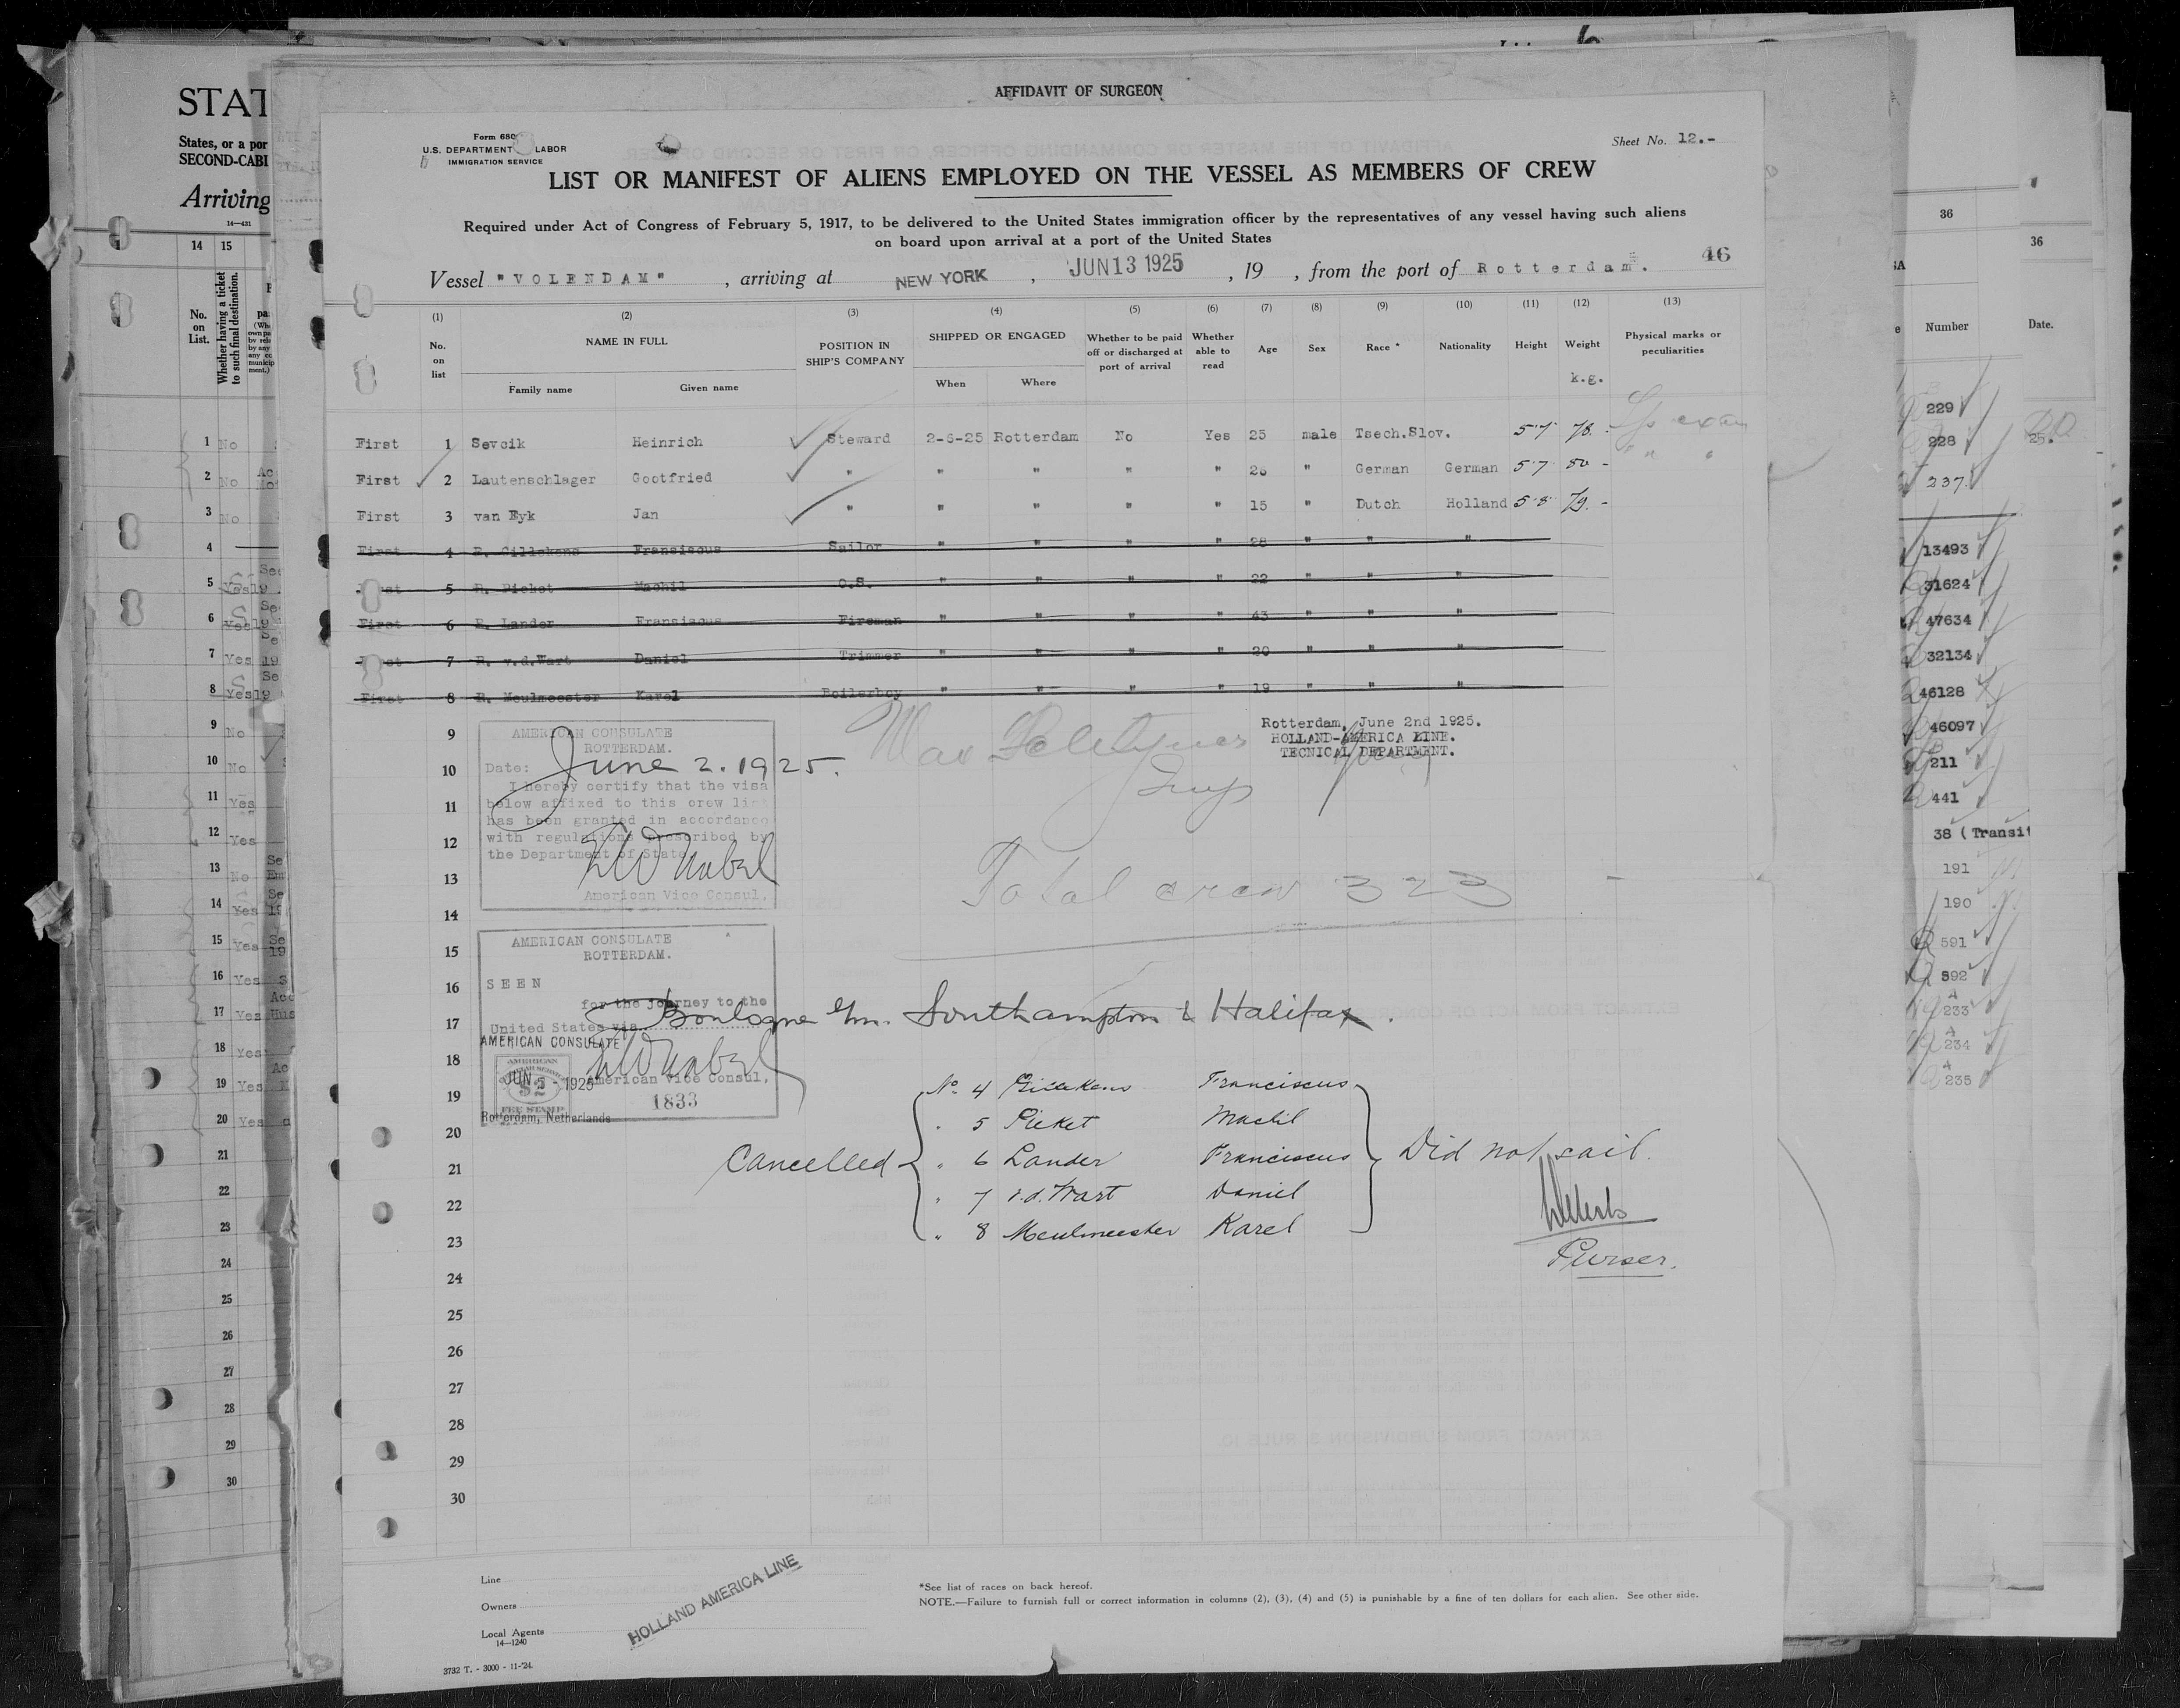 AFFIDAVIT OF SURGEON
Form 680
U.S. DEPARTMENT LABOR
IMMIGRATION SERVICE
Sheet No. 12.-
LIST OR MANIFEST OF ALIENS EMPLOYED ON THE VESSEL AS MEMBERS OF CREW
Required under Act of Congress of February 5, 1917, to be delivered to the United States immigration officer by the representatives of any vessel having such aliens
on board upon arrival at a port of the United States
46
Vessel "VOLENDAM" , arriving at NEW YORK , JUN 13 1925 , 19 , from the port of Rotterdam.
(1) (2) (3) (4) (5) (6) (7) (8) (9) (10) (11) (12) (13)
No. on list NAME IN FULL Family name Given name POSITION IN SHIP'S COMPANY SHIPPED OR ENGAGED When Where Whether to be paid off or discharged at port of arrival Whether able to read Age Sex Race * Nationality Height Weight k.g. Physical marks or peculiarities
First 1 Sevcik Heinrich Steward 2-6-25 Rotterdam No Yes 25 male Tsech.Slov. 5·7 78.
First 2 Lautenschlager Gootfried " " " " " 26 " German German 5·7 80 -
First 3 van Eyk Jan " " " " " 15 " Dutch Holland 5·8 79. -
First 4 Fransiscus Sailor " " " " 28 " " "
First 5 R. Picket Machil O.S. " " " " 22 " " "
First 6 R. Lander Fransiscus Fireman " " " " 43 " " "
First 7 R. v.d.Wart Daniel Trimmer " " " " 20 " " "
First 8 R. Meulmeester Karel Boilerboy " " " " 19 " " "
9
10
11
12
13
14
15
16
17
18
19
20
21
22
23
24
25
26
27
28
29
30
AMERICAN CONSULATE
ROTTERDAM.
Date: June 2. 1925.
I hereby certify that the visa
below affixed to this crew list
has been granted in accordance
with regulations prescribed by
the Department of State
American Vice Consul.
Rotterdam, June 2nd 1925.
HOLLAND-AMERICA LINE.
TECNICAL DEPARTMENT.
Total crew 323
AMERICAN CONSULATE
ROTTERDAM.
SEEN
for the journey to the
United States via Boulogne s/m. Southampton & Halifax.
AMERICAN CONSULATE
JUN 2 - 1925
American Vice Consul,
1833
Rotterdam, Netherlands
Cancelled
No. 4 Franciscus
" 5 Picket Machil
" 6 Lander Franciscus
" 7 v.d. Wart Daniel
" 8 Meulmeester Karel
Did not sail.
Purser.
Line
Owners
Local Agents
14—1240
HOLLAND AMERICA LINE
*See list of races on back hereof.
NOTE.—Failure to furnish full or correct information in columns (2), (3), (4) and (5) is punishable by a fine of ten dollars for each alien. See other side.
3732 T. - 3000 - 11-'24.
STAT
States, or a por
SECOND-CABI
Arriving
14—431
14 15
No. on List.
Whether having a ticket to such final destination.
1 No
2 No
3 No
4
5 Yes
6 Yes
7 Yes
8 Yes
9 No
10 No
11 Yes
12 Yes
13 No
14 Yes
15 Yes
16 Yes
17 Yes
18 Yes
19 Yes
20 Yes
21
22
23
24
25
26
27
28
29
30
36
36
Number
Date.
229
228
237
13493
31624
47634
32134
46128
46097
211
441
38 (Transit
191
190
591
592
233
234
235